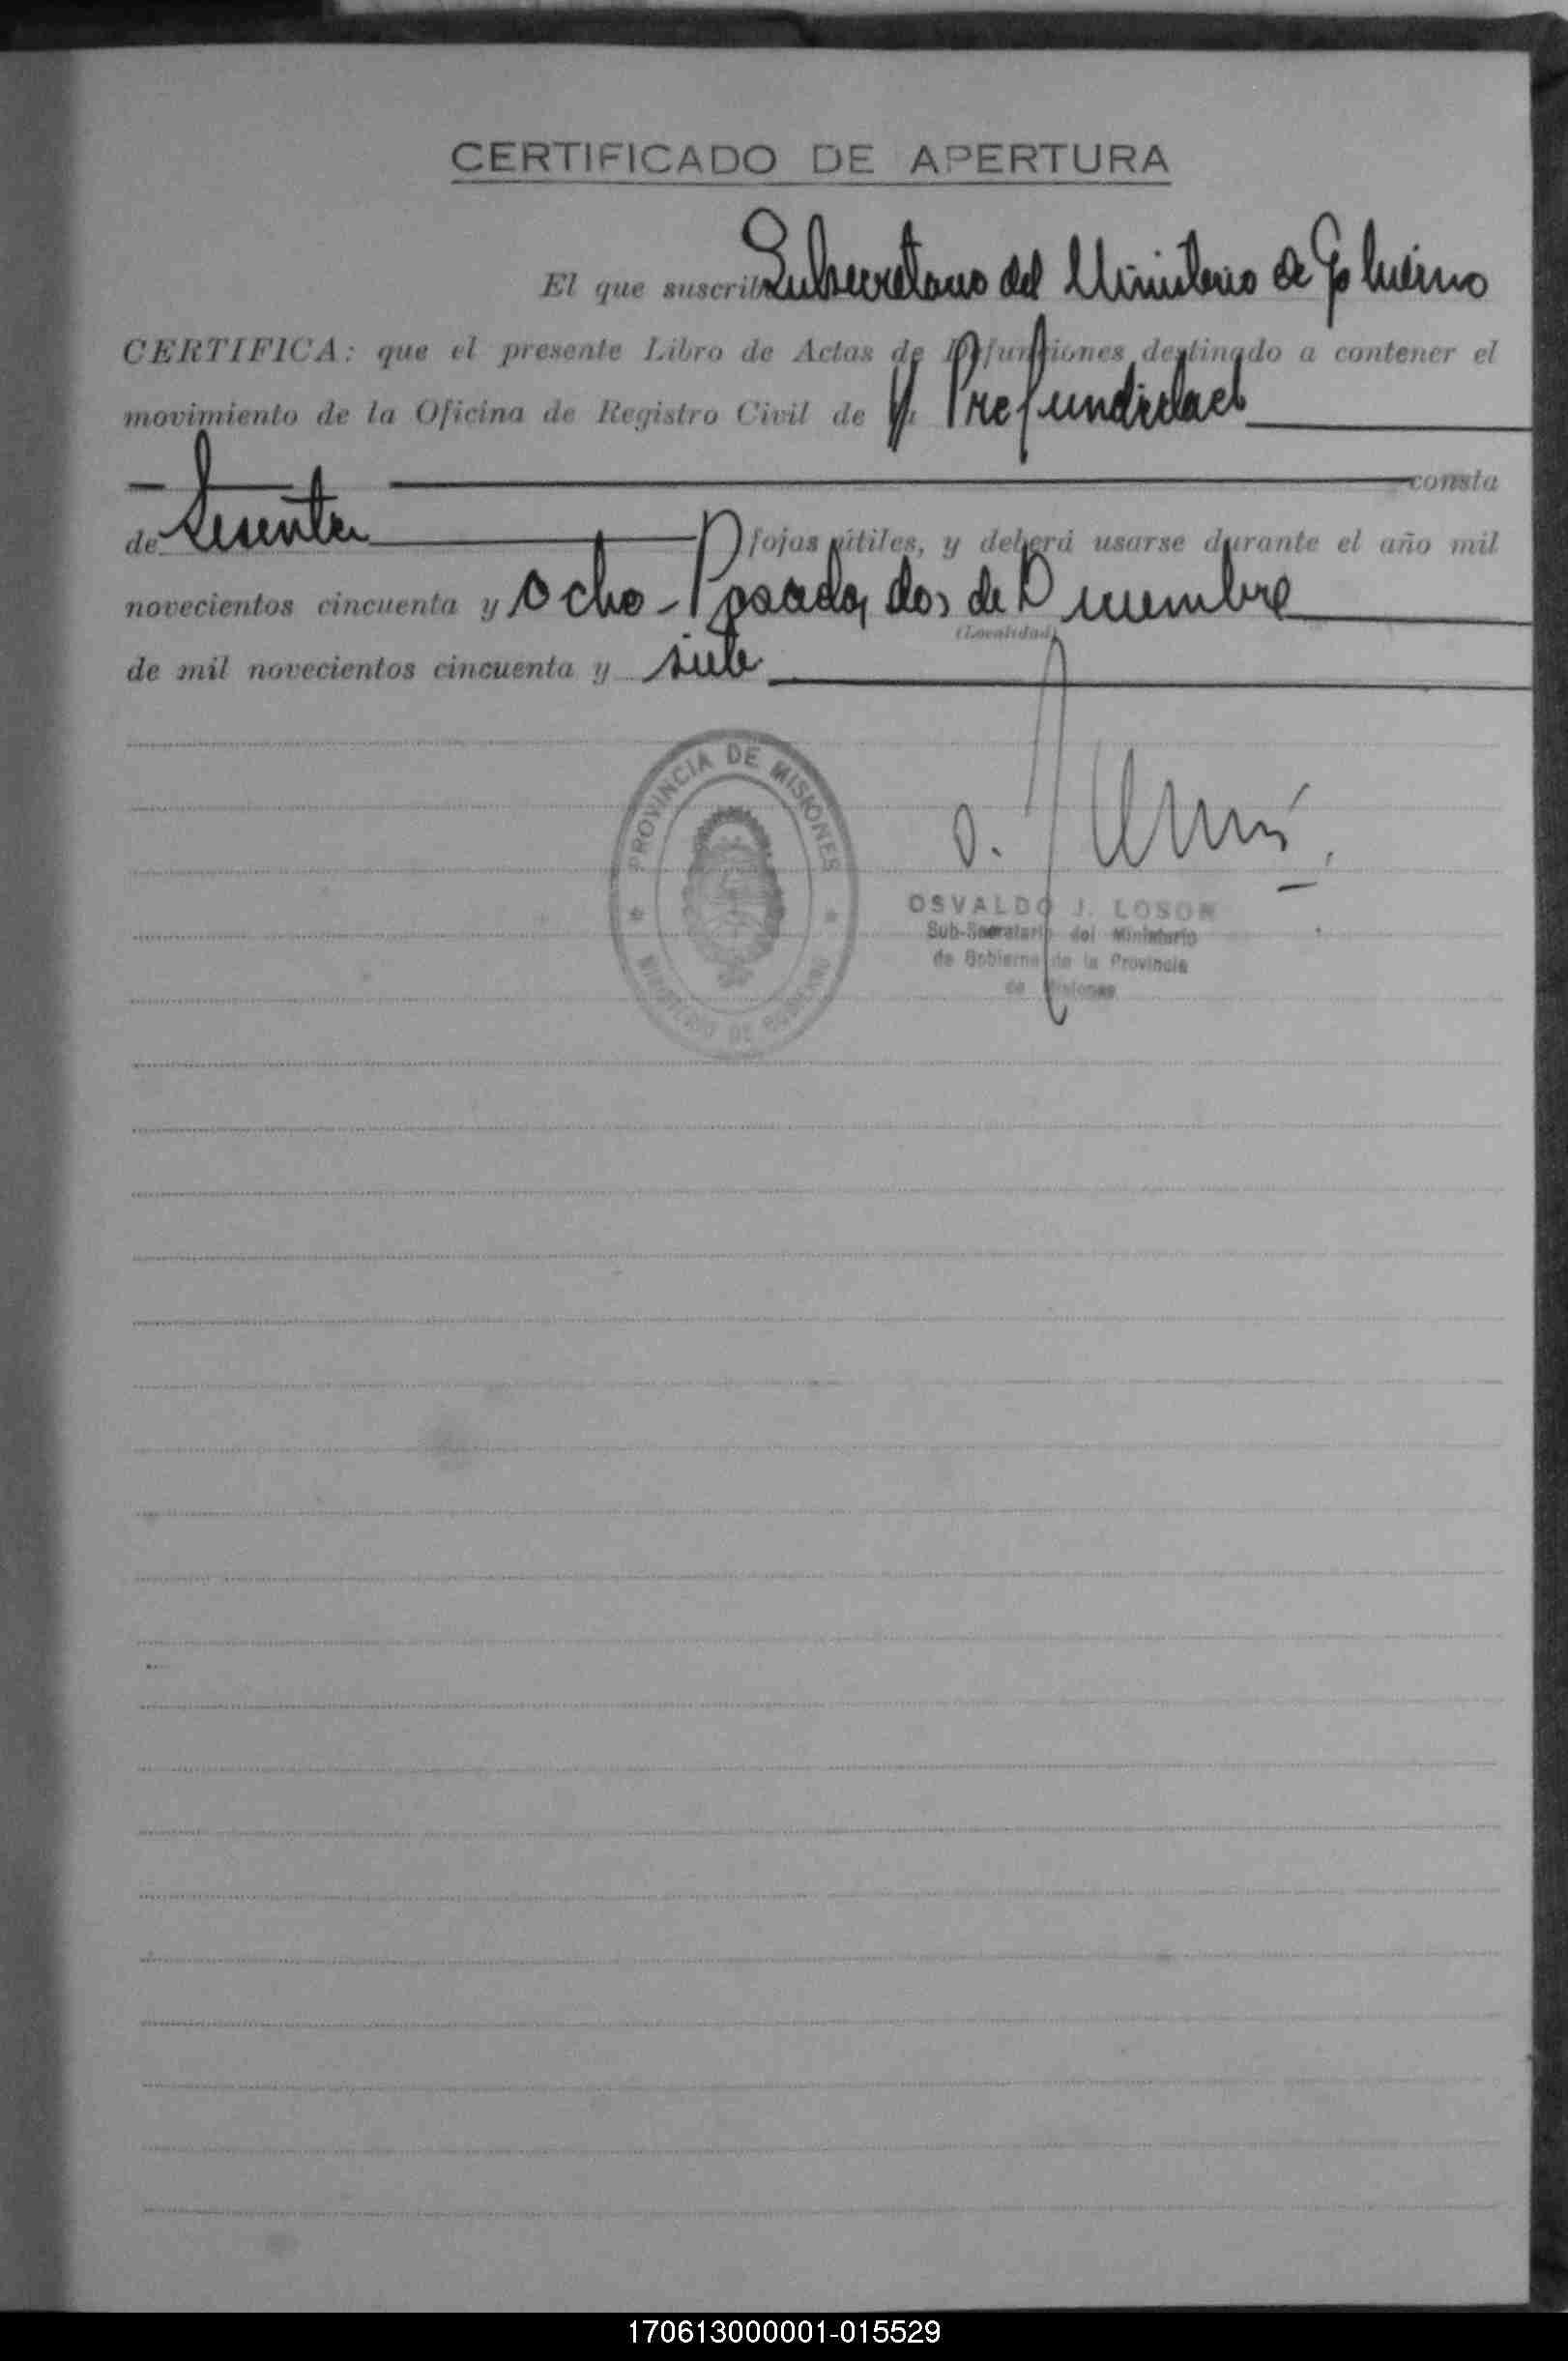 CERTIFICADO DE APERTURA
El que suscribe Subsecretario del Ministerio de Gobierno
CERTIFICA: que el presente Libro de Actas de Defunciones destinado a contener el
movimiento de la Oficina de Registro Civil de Profundidad
consta
de Sesenta fojas útiles, y deberá usarse durante el año mil
novecientos cincuenta y Ocho - Posadas, dos de Diciembre
(Localidad)
de mil novecientos cincuenta y siete
PROVINCIA DE MISIONES
MINISTERIO DE GOBIERNO
OSVALDO J. LOSON
Sub-Secretario del Ministerio
de Gobierno de la Provincia
de Misiones
170613000001-015529